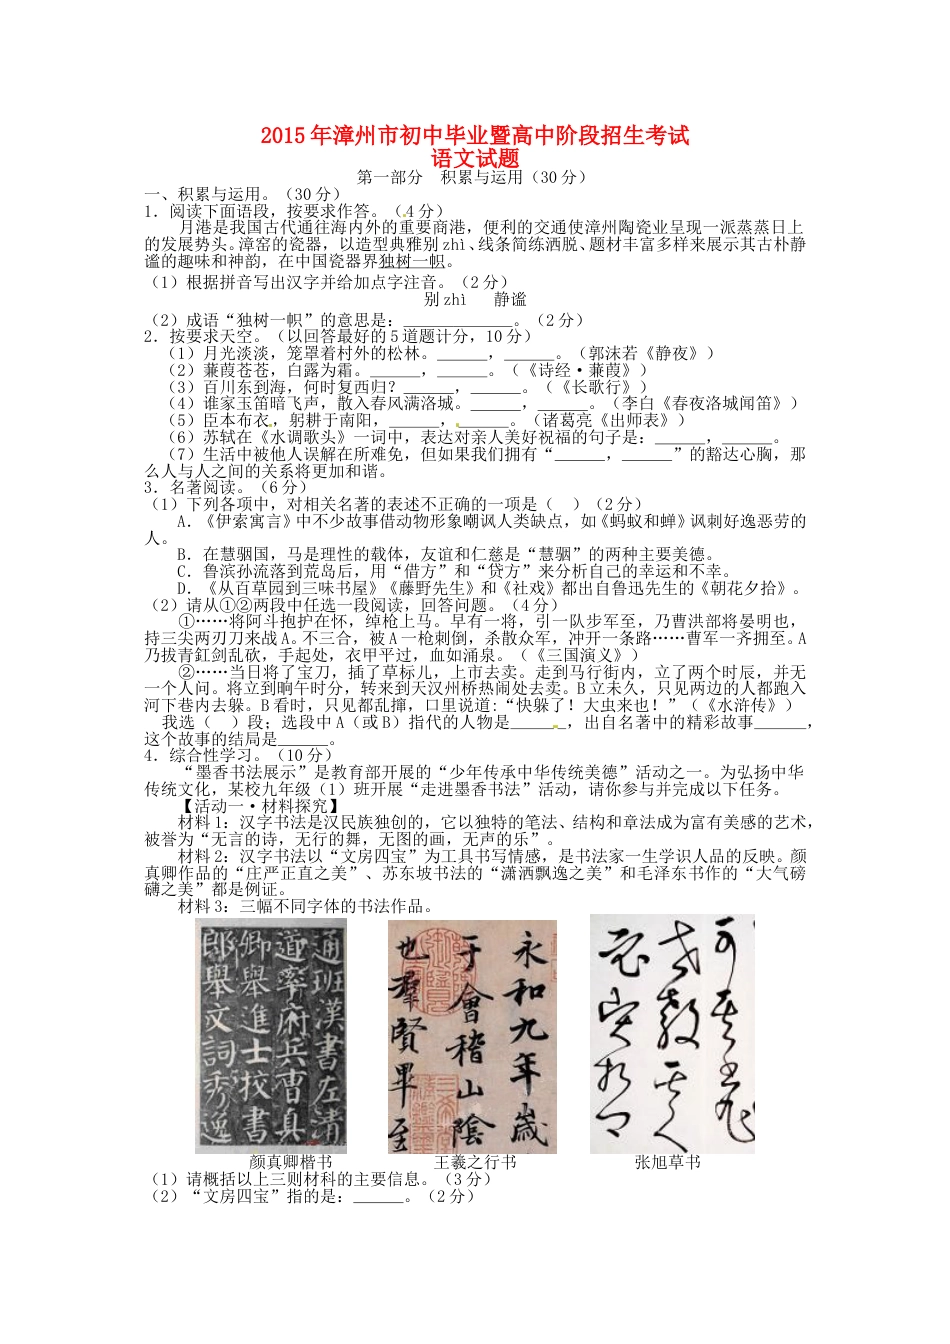 2015年漳州市初中毕业暨高中阶段招生考试
语文试题
第一部分　积累与运用（30分）
一、积累与运用。（30分）
1．阅读下面语段，按要求作答。（4分）
月港是我国古代通往海内外的重要商港，便利的交通使漳州陶瓷业呈现一派蒸蒸日上
的发展势头。漳窑的瓷器，以造型典雅别zhì、线条简练洒脱、题材丰富多样来展示其古朴静
谧的趣味和神韵，在中国瓷器界独树一帜。
（1）根据拼音写出汉字并给加点字注音。（2分）
别zhì　　静谧
（2）成语“独树一帜”的意思是：_____________。（2分）
2．按要求天空。（以回答最好的5道题计分，10分）
（1）月光淡淡，笼罩着村外的松林。______，______。（郭沫若《静夜》）
（2）蒹葭苍苍，白露为霜。______，______。（《诗经·蒹葭》）
（3）百川东到海，何时复西归？______，______。（《长歌行》）
（4）谁家玉笛暗飞声，散入春风满洛城。______，______。（李白《春夜洛城闻笛》）
（5）臣本布衣，躬耕于南阳，______，______。（诸葛亮《出师表》）
（6）苏轼在《水调歌头》一词中，表达对亲人美好祝福的句子是：______，______。
（7）生活中被他人误解在所难免，但如果我们拥有“______，______”的豁达心胸，那
么人与人之间的关系将更加和谐。
3．名著阅读。（6分）
（1）下列各项中，对相关名著的表述不正确的一项是（　）（2分）
A．《伊索寓言》中不少故事借动物形象嘲讽人类缺点，如《蚂蚁和蝉》讽刺好逸恶劳的
人。
B．在慧骃国，马是理性的载体，友谊和仁慈是“慧骃”的两种主要美德。
C．鲁滨孙流落到荒岛后，用“借方”和“贷方”来分析自己的幸运和不幸。
D．《从百草园到三味书屋》《藤野先生》和《社戏》都出自鲁迅先生的《朝花夕拾》。
（2）请从①②两段中任选一段阅读，回答问题。（4分）
①……将阿斗抱护在怀，绰枪上马。早有一将，引一队步军至，乃曹洪部将晏明也，
持三尖两刃刀来战A。不三合，被A一枪刺倒，杀散众军，冲开一条路……曹军一齐拥至。A
乃拔青釭剑乱砍，手起处，衣甲平过，血如涌泉。（《三国演义》）
②……当日将了宝刀，插了草标儿，上市去卖。走到马行街内，立了两个时辰，并无
一个人问。将立到晌午时分，转来到天汉州桥热闹处去卖。B立未久，只见两边的人都跑入
河下巷内去躲。B看时，只见都乱撺，口里说道：“快躲了！大虫来也！”（《水浒传》）
我选（　）段；选段中A（或B）指代的人物是______，出自名著中的精彩故事______，
这个故事的结局是______。
4．综合性学习。（10分）
“墨香书法展示”是教育部开展的“少年传承中华传统美德”活动之一。为弘扬中华
传统文化，某校九年级（1）班开展“走进墨香书法”活动，请你参与并完成以下任务。
【活动一·材料探究】
材料1：汉字书法是汉民族独创的，它以独特的笔法、结构和章法成为富有美感的艺术，
被誉为“无言的诗，无行的舞，无图的画，无声的乐”。
材料2：汉字书法以“文房四宝”为工具书写情感，是书法家一生学识人品的反映。颜
真卿作品的“庄严正直之美”、苏东坡书法的“潇洒飘逸之美”和毛泽东书作的“大气磅
礴之美”都是例证。
材料3：三幅不同字体的书法作品。
通班漢書左清
道寧府兵曹真
卿舉進士校書
郎舉文詞秀逸
永和九年歲
于會稽山陰
也羣賢畢至
颜真卿楷书
王羲之行书
张旭草书
（1）请概括以上三则材料的主要信息。（3分）
（2）“文房四宝”指的是：______。（2分）